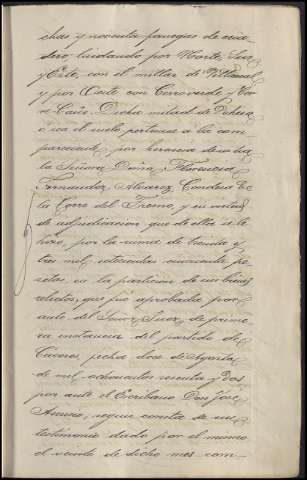 chas y noventa fanegas de
dero, lindando por Norte, Sur
y Este, con el millar de
y por Oeste con Cerro verde y
Dicha mitad de Dehesa
o sea el suelo pertenece a la com-
pareciente, por herencia de su tia
la Señora Doña Florencia
Fernandez Alvarez, Condesa de
la Torre del Fresno, y en virtud
de adjudicacion que de ella se le
hizo, por la suma de treinta y
tres mil setecientas cincuenta pe-
setas en la particion de sus bienes
relictos, que fué aprobada por
auto del Señor Juez de prime-
ra instancia del partido de
Cáceres, fecha doce de Agosto
de mil ochocientos sesenta y dos
por ante el Escribano Don José
Asensio, segun consta de un
testimonio dado por el mismo
el veinte de dicho mes com-